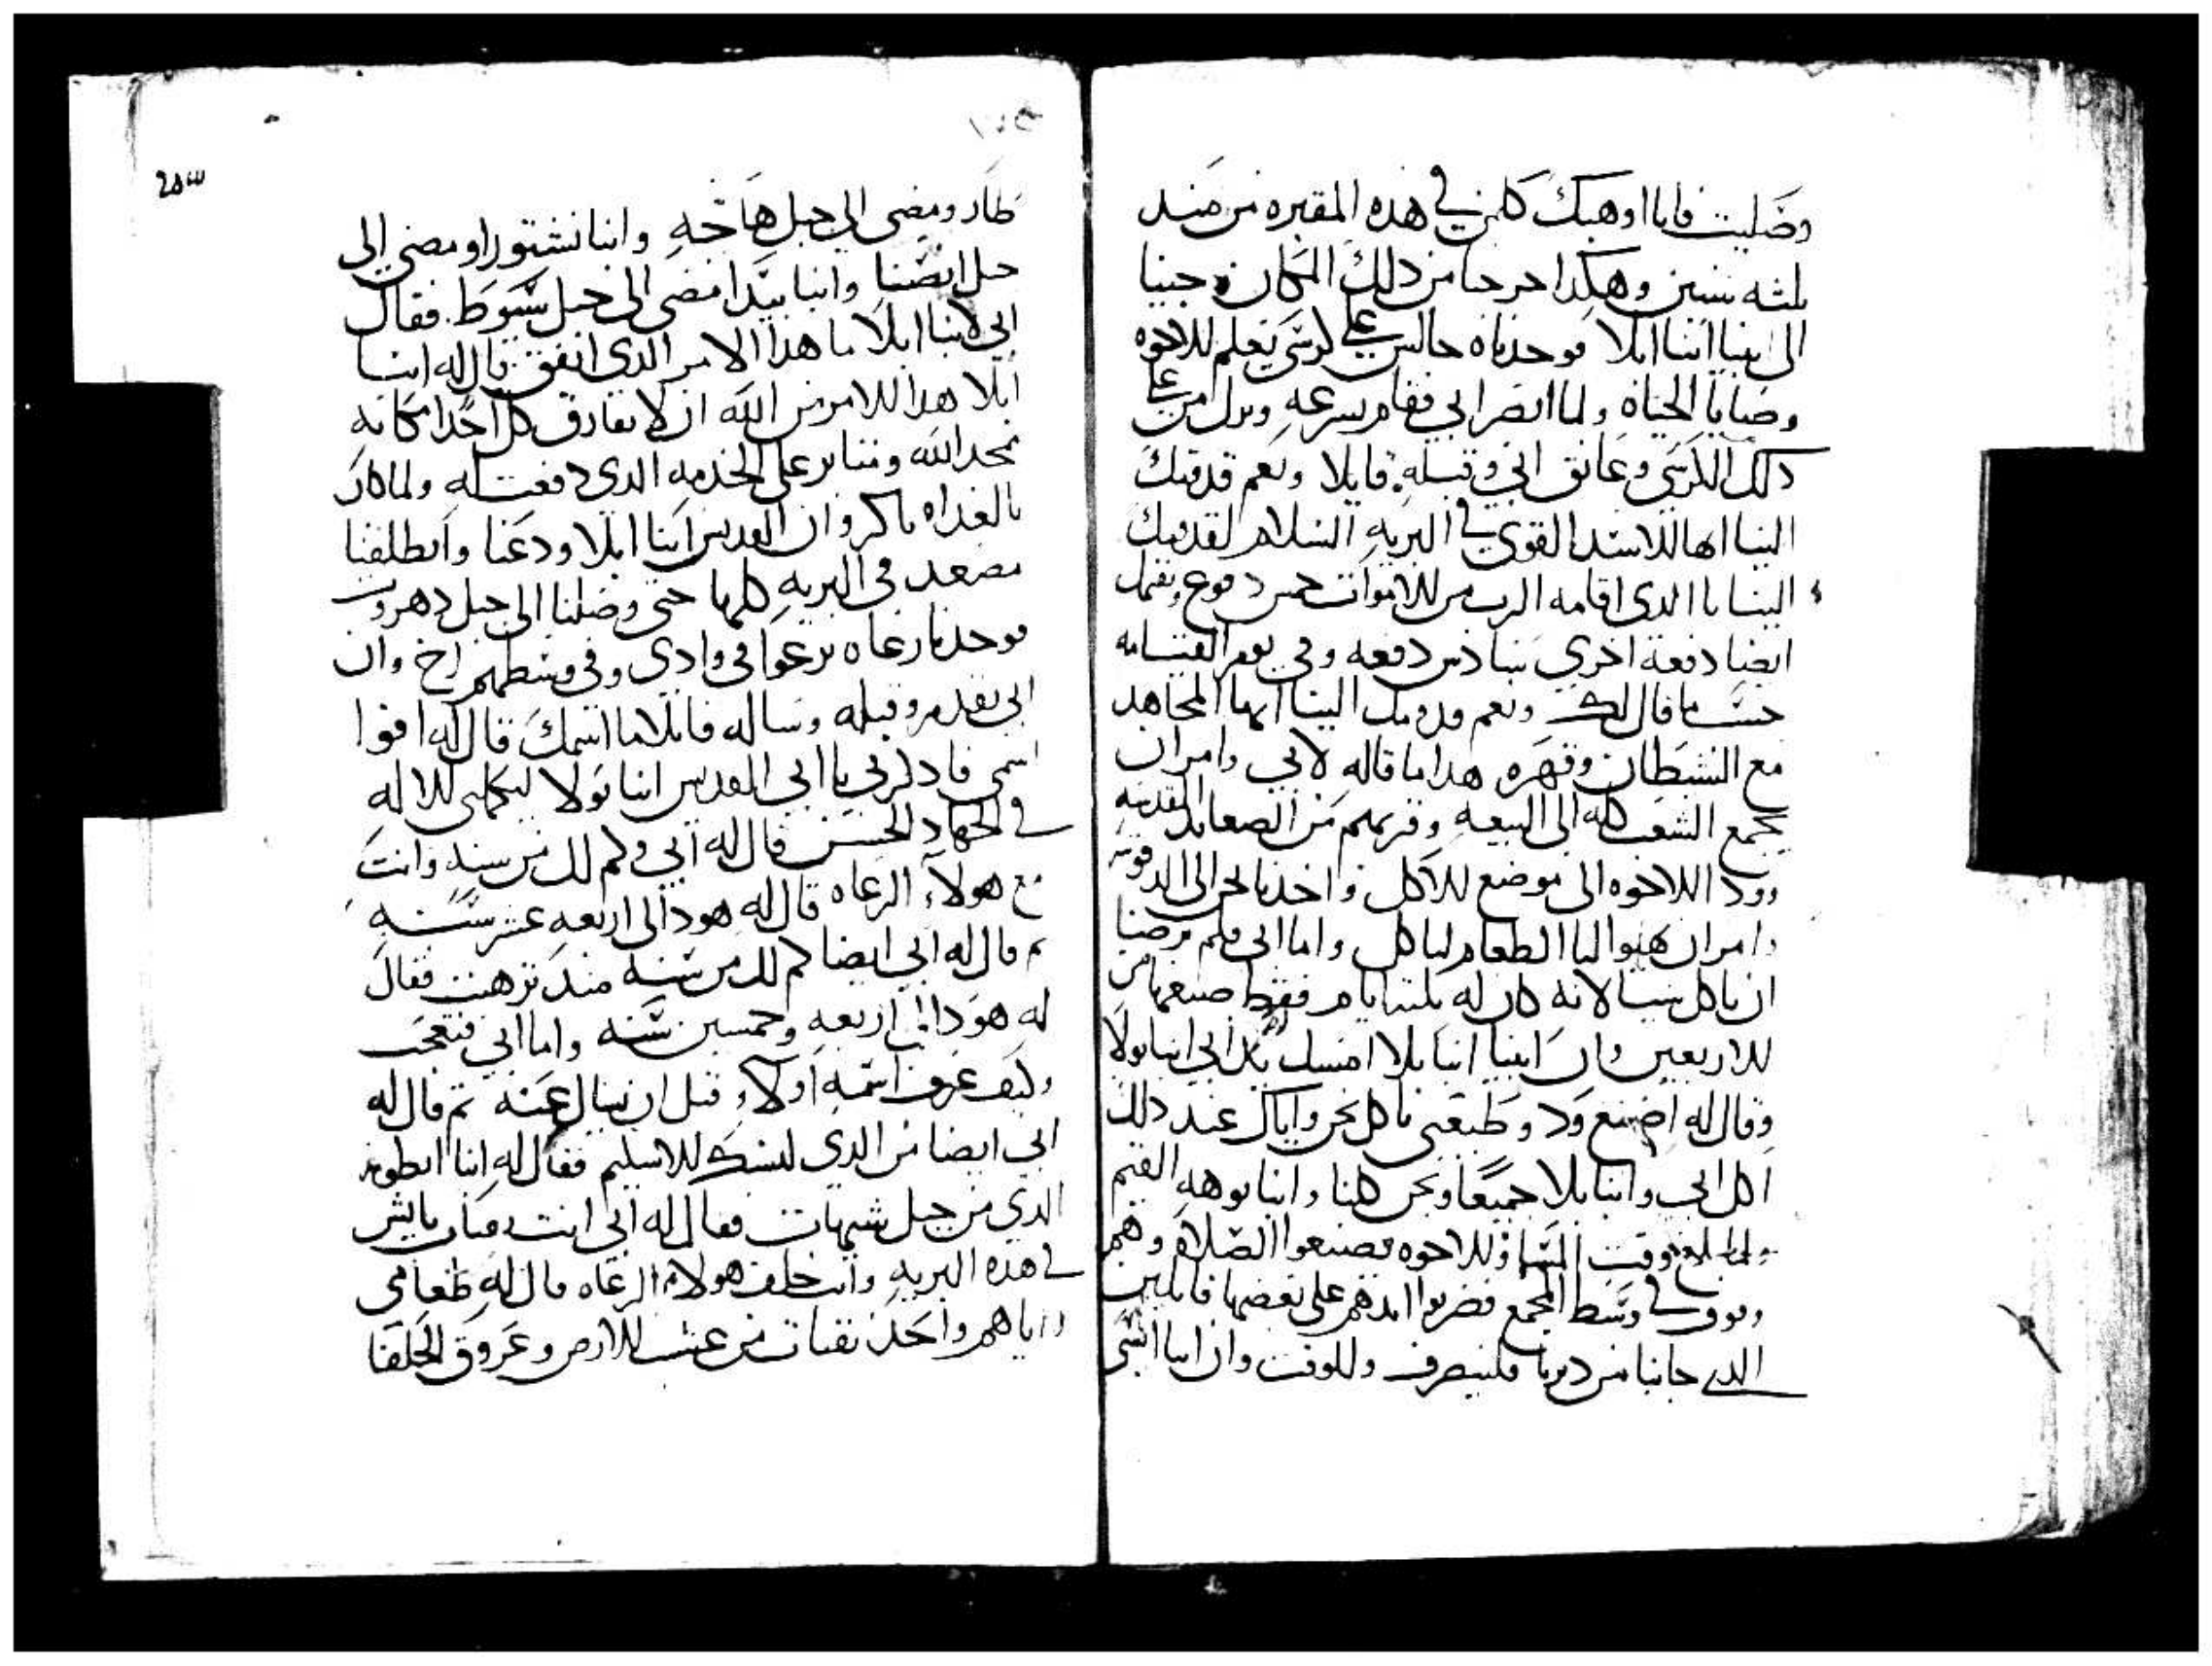 وصليت فانا اوهبك كلمن في هذه المقبره من مند
ثلثه سنين وهكدا خرجنا من دلك المكان وجينا
الى ابينا انبا ابلا فوجدناه جالس على كرسي يعلم للاخوه
وصايا الحياه ولما ابصر ابي فقام بسرعه ونزل من على
دلك الكرسي وعانق ابي وقبله قايلا ونعم قدومك
الينا ايها الاسد القوي في البريه السلام لقدومك
الينا يا الدي اقامه الرب من الاموات خمس دفوع ويقيمك
ايضا دفعة اخري سادس دفعه وفي يوم القيامه
حسب ما قال لك ونعم قدومك الينا ايها المجاهد
مع الشيطان وقهره هدا ما قاله لابي وامر ان
يجمع الشعب كله الى البيعه وقربهم من الصعايد المقدسه
وود اللاخوه الى موضع للاكل واخدنا نحن الى
وامر ان هيوا لنا الطعام لناكل واما ابي فلم يرضا
ان ياكل شيا لانه كان له ثلثة ايام فقط صنعها من
للاربعين وان ابينا انبا بلا امسك بيد ابي انبا بولا
وقال له اصنع ود وطيعني ناكل نحن واياك عند دلك
اكل ابي وانبا بلا جميعا ونحن كلنا وانبا بوهه القيم
ولما بلغ وقت المسا وللاخوه فصنعوا الصلاه وهم
وقوف في وسط المجمع فضربوا ايدهم على بعضها قايلين
الدي جانا من ديرنا فلينصرف وللوقت وان انبا ابشي
203
طار ومضى الى جبل هاجه وانبا نشتورا ومضي الى
جبل ابصنا وانبا بيدا مضى الى جبل سيوط فقال
ابي لانبا ابلا ما هدا الامر الدي اتفق قال له انبا
ابلا هدا الامر من الله ان لا يفارق كل احدا مكانه
نمجد الله ونتابر على الخدمه الدي دفعت له ولما كان
بالغداه باكر وان القديس انبا ابلا ودعنا وانطلقنا
نصعد في البريه كلها حتى وصلنا الى جبل دهروت
فوجدنا رعاه يرعوا في وادي وفي وسطهم اخ وان
ابي تقدم وقبله وساله قايلا ما اسمك قال له افوا
اسمي فادكرني يا ابي القديس انبا بولا ليكملني للاله
في الجهاد الحسن قال له ابي وكم لك من سنه وانت
مع هولاء الرعاه قال له هودا لي اربعه عشر سنه
تم قال له ابي ايضا كم لك من سنه مند ترهبت فقال
له هودا لي اربعه وخمسين سنه واما ابي فتعجب
وكيف عرف اسمه اولا قبل ان يسال عنه تم قال له
ابي ايضا من الدي لبسك للاسكيم فقال له انبا ابطوند
الدي من جبل شيهات فقال له ابي انت فبان باتش
في هده البريه وانت خلف هولاء الرعاه قال له طعامي
واياهم واحد نقتات من عشب للارض وعروق الحلفا